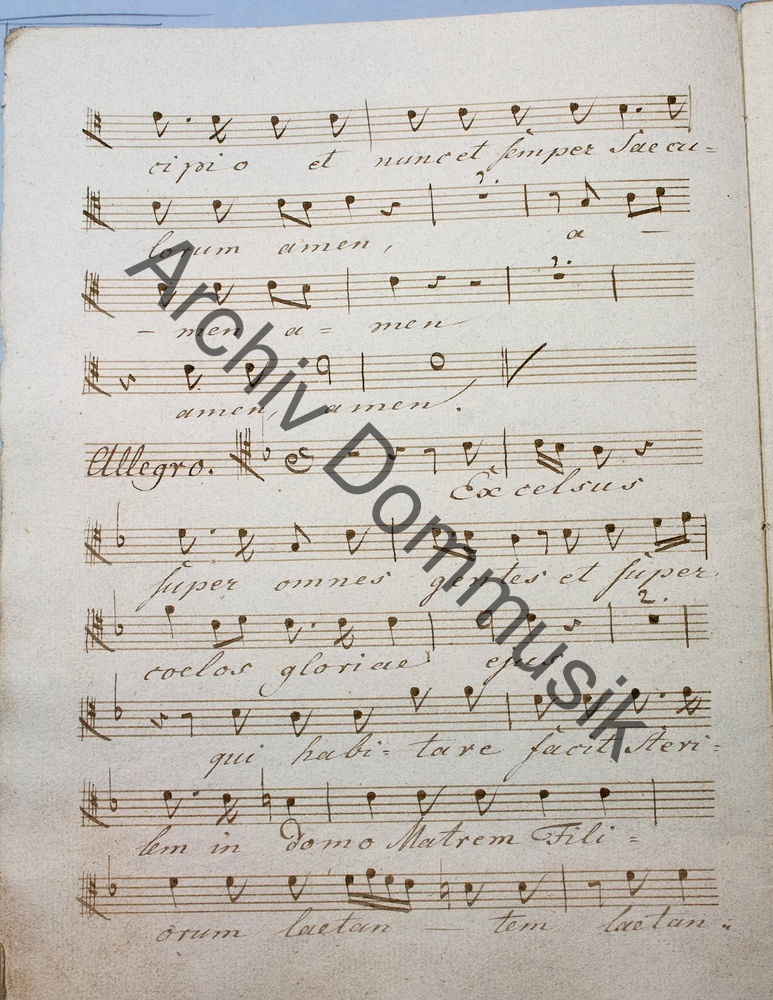 cipio et nunc et semper Saecu=
lorum amen, a -
- men a = men
amen, amen.
Allegro. Excelsus
super omnes gentes et super
2.
coelos gloriae ejus
qui habi= tare facit Steri=
lem in domo Matrem Fili=
orum laetan - tem laetan=
Archiv Dommusik